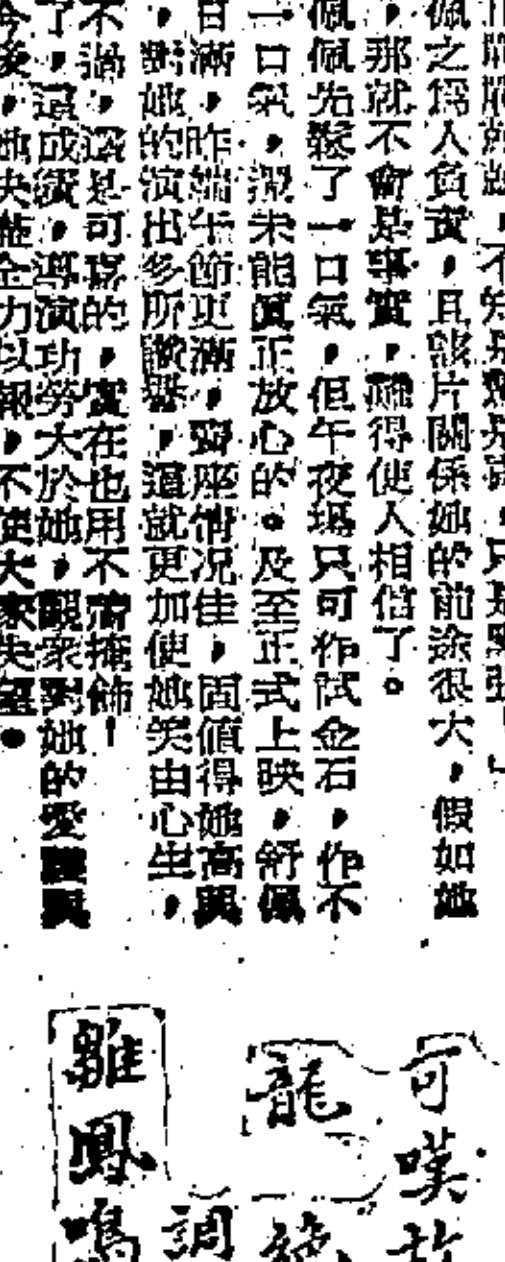 不知是
佩之為人負責，且該片關係她的前途很大，假如她
，那就不會是事實，難得使人相信了。
佩佩先鬆了一口氣，但午夜場只可作試金石，作不
一口氣，還未能真正放心的。及至正式上映，舒佩
日滿，昨端午節更滿，賣座情況佳，固值得她高興
，對她的演出多所讚譽，這就更加使她笑由心生，
不過，這是可喜的，實在也用不着掩飾！
了，這成績，導演功勞大於她，觀衆對她的愛護與
今後，她決盡全力以報，不使大家失望。
可嘆
龍
調
雛鳳鳴